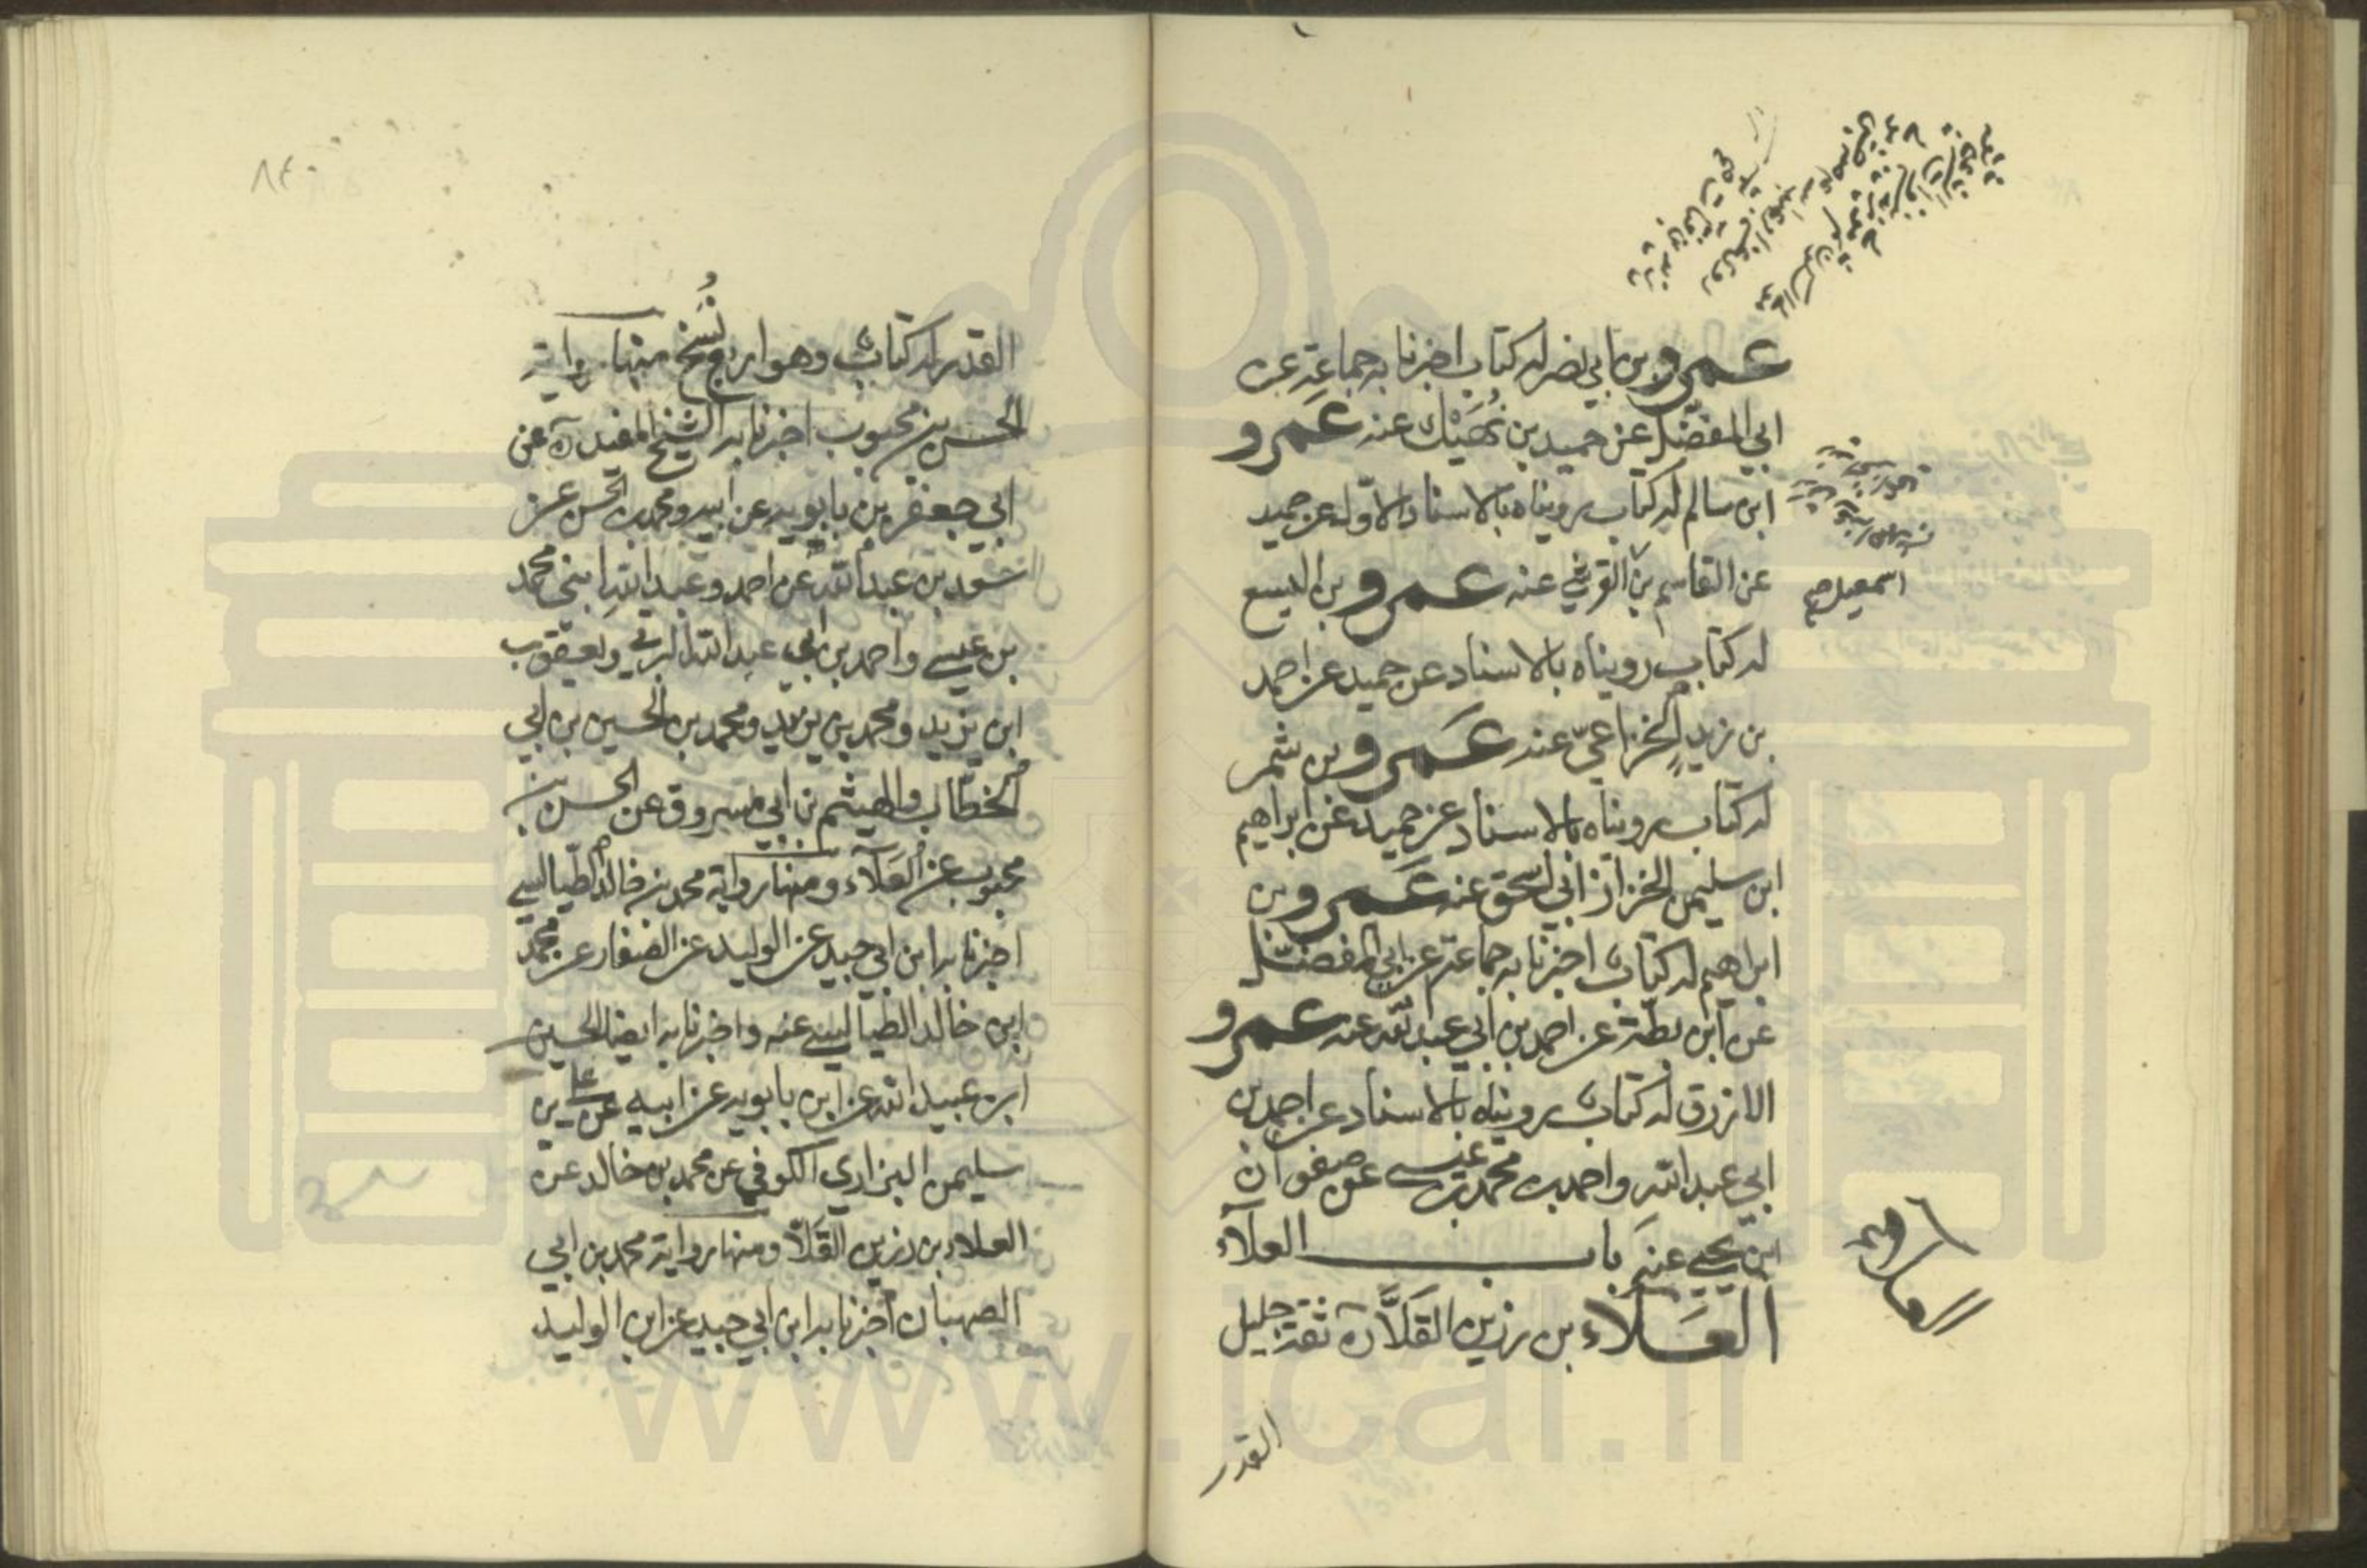 عمرو بن ابي نصر له كتاب اخبرنا به جماعة عن
ابي المفضل عن حميد بن نُهَيْك عنه عَمرو
ابن سالم له كتاب رويناه بالاسناد الاول عن حميد
عن القاسم بن القرشي عنه عمرو بن اليسع
له كتاب رويناه بالاسناد عن حميد عن احمد
بن زيد الخزاعيّ عنه عَمرو بن شمر
له كتاب رويناه بالاسناد عن حميد عن ابراهيم
ابن سليمن الخزاز ابي اسحق عنه عَمرو بن
ابراهيم له كتاب اخبرنا به جماعة عن ابي المفضل
عن ابن بطة عن احمد بن ابي عبد الله عنه عمرو
الازرق له كتاب رويناه بالاسناد عن احمد بن
ابي عبد الله واحمد بن محمد بن عيسى عن صفوان
ابن يحيى عنه باب العلآء
العَلاء بن رزين القَلَّاء ثقة جليل
اسمعيل
العلا
القدر
٨٤
القدر له كتاب وهو اربع نُسَخ منها رواية
الحسن بن محبوب اخبرنا به الشيخ المفيد ره عن
ابي جعفر بن بابويه عن ابيه ومحمد بن الحسن عن
سعد بن عبد الله عن احمد وعبد الله ابني محمد
بن عيسى واحمد بن ابي عبد الله البرقي ويعقوب
ابن يزيد ومحمد بن يزيد ومحمد بن الحسين بن ابي
الخطاب والهيثم بن ابي مسروق عن الحسن بن
محبوب عن العَلآء ومنها رواية محمد بن خالد الطيالسي
اخبرنا به ابن ابي جيد عن الوليد عن الصفار عن محمد
ابن خالد الطيالسي عنه واخبرنا به ايضا الحسين
ابن عبيد الله عن ابن بابويه عن ابيه عن علي بن
سليمن البزاري الكوفي عن محمد بن خالد عن
العلاء بن رزين القَلّا ومنها رواية محمد بن ابي
الصهبان اخبرنا به ابن ابي جيد عن ابن الوليد